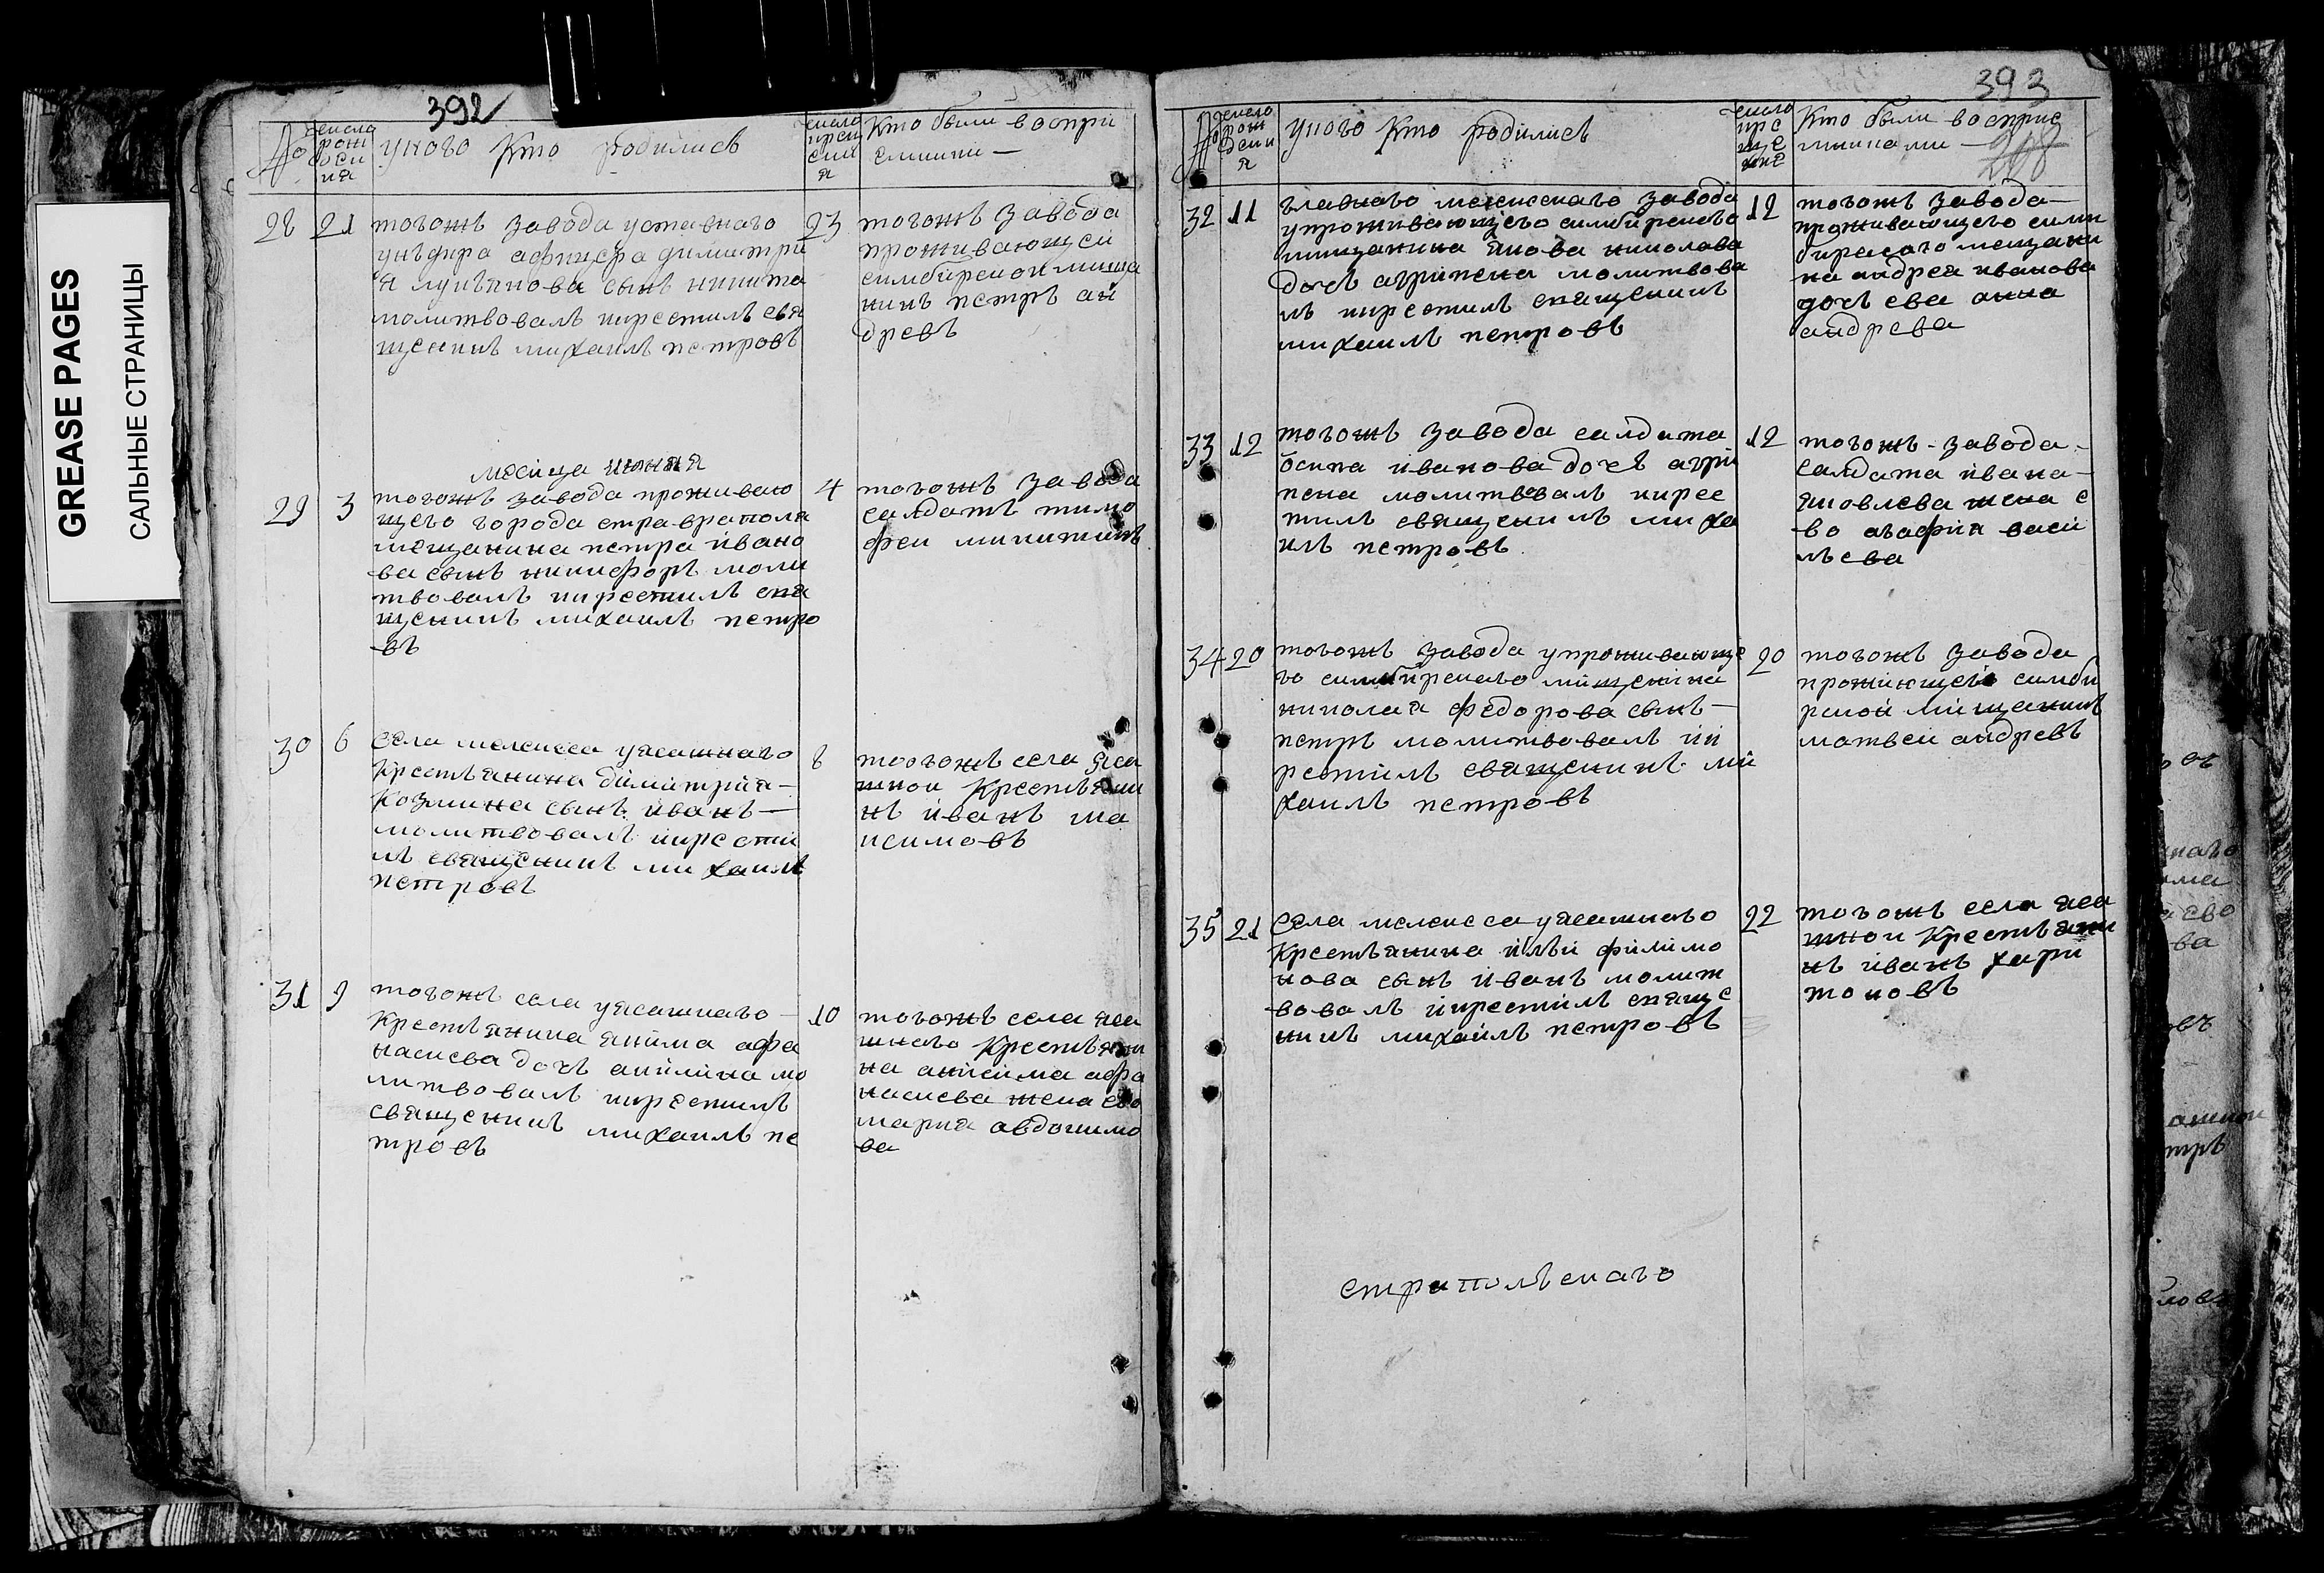 GREASE PAGES
САЛЬНЫЕ СТРАНИЦЫ
392
№
число
рож
дени
ия
у кого кто родились
число
крещ
ения
Кто были воспри
емники —
28 21
тогожъ завода уставнаго
унъдира афицера димитри
я лукъянова сынъ никита
молитвовалъ икрестилъ свя
щеникъ михаилъ петровъ
23
тогожъ завода
проживающеи
симбирскои меща
нинъ петръ ан
древъ
месяца июня
29 3
тогожъ завода проживаю
щего города ставраполя
мещанина петра ивано
ва сынъ никифоръ моли
твовалъ икрестилъ свя
щеникъ михаилъ петро
въ
4
тогожъ завода
салдатъ тимо
феи микитинъ
30 6
села мелекеса уясашнаго
крестьянина димитрия —
козмина сынъ иванъ —
молитвовалъ икрести
лъ священикъ михаилъ
петровъ
8
тогожъ села яса
шнои крестьяни
нъ иванъ ма
ксимовъ
31 9
тогожъ села уясашнаго —
крестьянина якима афа
насиева дочъ акилина мо
литвовалъ икрестилъ
священикъ михаилъ пе
тровъ
10
тогожъ села яса
шнаго крестьяни
на анисима афа
насиева жена ево
мария авдокимо
ва
393
№
число
рож
дени
я
у кого кто родились
число
кре
ще
ния
Кто были восприе
мниками —
32 11
главнаго мелекескаго завода
упроживающего симбирскаго
мещанина якова николава
дочъ агрипена молитвова
лъ икрестилъ священикъ
михаилъ петровъ
12
тогожъ завода —
проживающего сим
бирскаго мещани
на андрея иванова
дочъ ева анна
андрева
33 12
тогожъ завода салдата
осипа иванова дочъ агри
пена молитвовалъ икрес
тилъ священикъ миха
илъ петровъ
12
тогожъ - завода -
салдата ивана —
яковлева жена е
во агафия васи
льева
34 20
тогожъ завода упроживающе
го симбирскаго мищенина
николая федорова сынъ —
петръ молитвовалъ ик
рестилъ священикъ ми
хаилъ петровъ
20
тогожъ завода
прожиющеи симби
рскои мищанинъ
матвеи андревъ
35 21
села мелекеса уясашнаго
крестьянина ильи филимо
нова сынъ иванъ молит
вовалъ икрестилъ свяще
никъ михаилъ петровъ
22
тогожъ села яса
шнои крестьяни
нъ иванъ хари
тоновъ